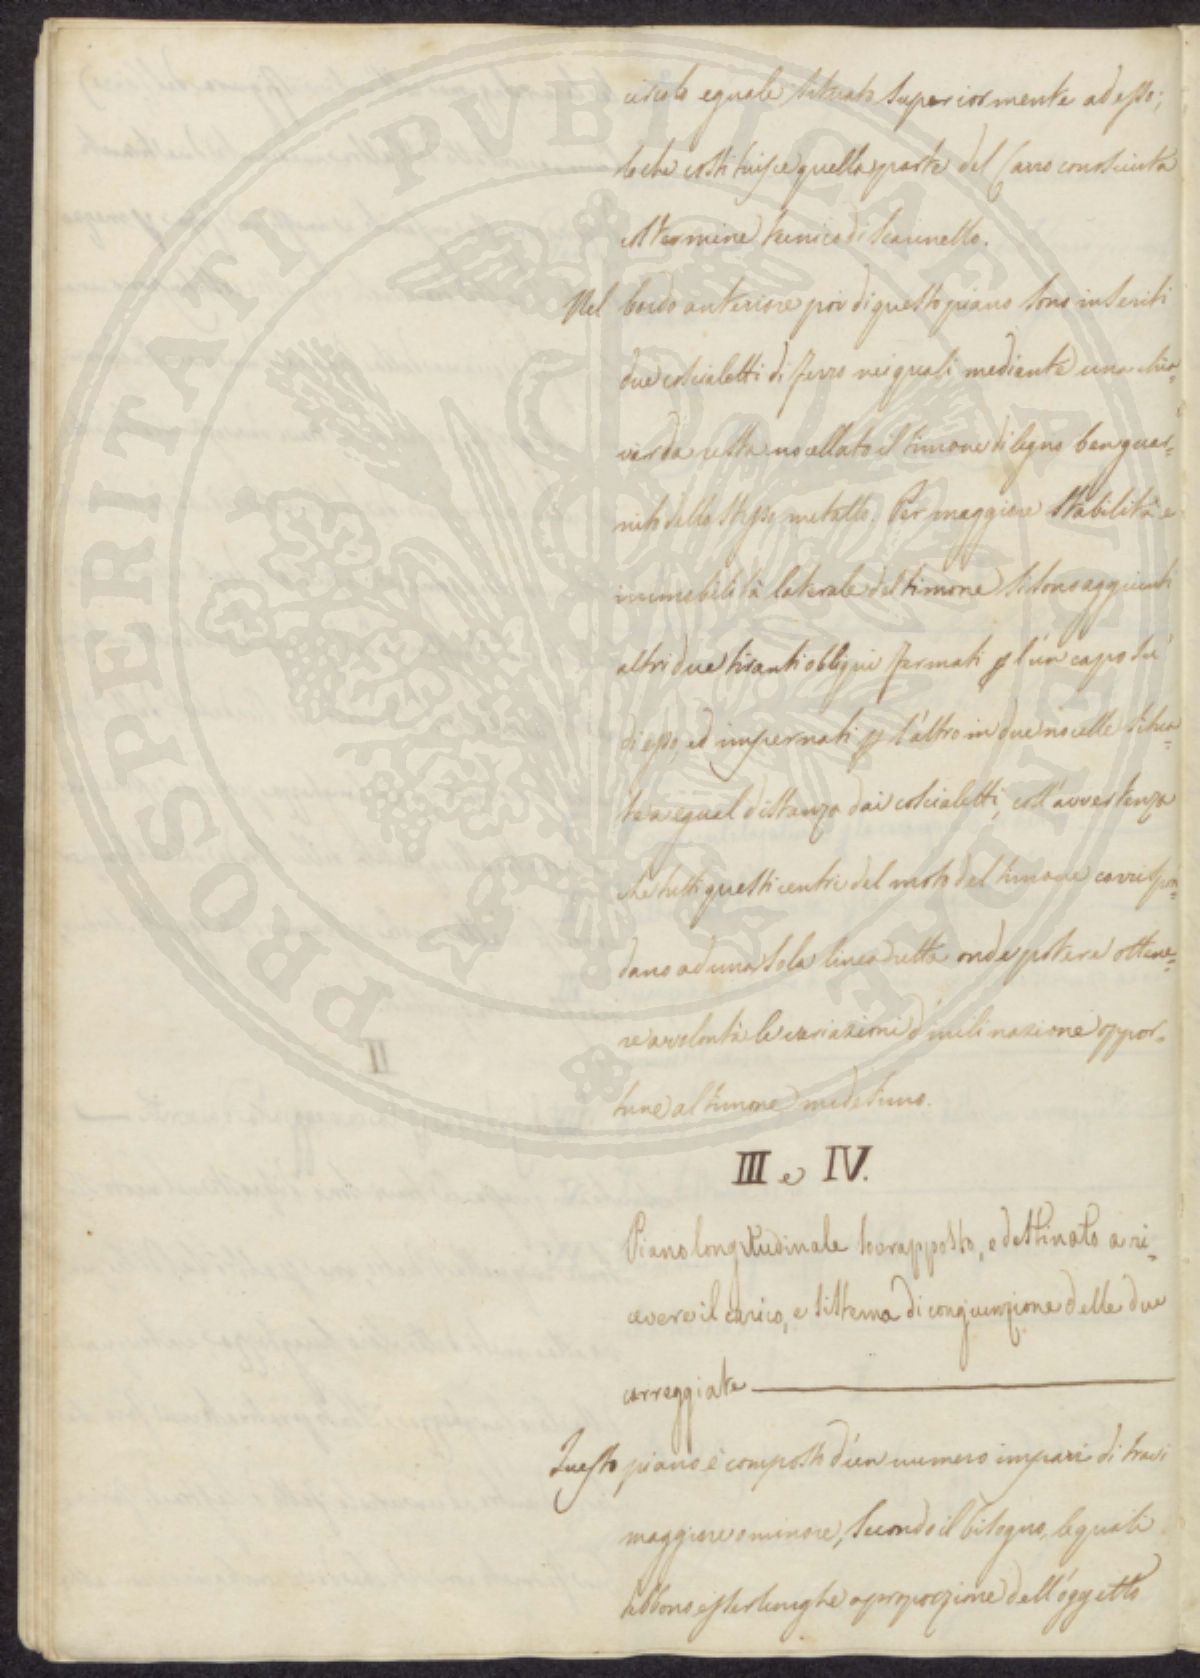 circolo eguale situato superiormente ad esso;
lo che costituisce quella parte del Carro conosciuta
col termine tecnico di scannello.
Nel bordo anteriore poi di questo piano sono inseriti
due coscialetti di ferro nei quali mediante una chia=
varda resta nocellato il timone di legno ben guar=
nito dello stesso metallo. Per maggiore stabilità e
immobilità laterale del timone si sono aggiunti
altri due tiranti obliqui fermati p l'un capo sù
di esso, ed impernati p l'altro in due nocelle situa=
te a egual distanza dai coscialetti, coll'avvertenza
che tutti questi centri del moto del timone corrispon=
dano ad una sola linea retta onde potere ottene=
re a volontà le variazioni d'inclinazione oppor=
tune al timone medesimo.
III e IV.
Piano longitudinale sovrapposto, e destinato a ri=
cevere il carico, e sistema di congiunzione delle due
carreggiate
Questo piano è composto d'un numero impari di travi
maggiore o minore, secondo il bisogno, le quali
debbono esser lunghe a proporzione dell'oggetto
II
PROSPERITATI PVBLICAE AVGENDAE